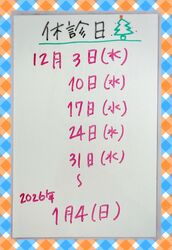 休診日
12月3日(水)
10日(水)
17日(水)
24日(水)
31日(水)
〜
2026年
1月4(日)